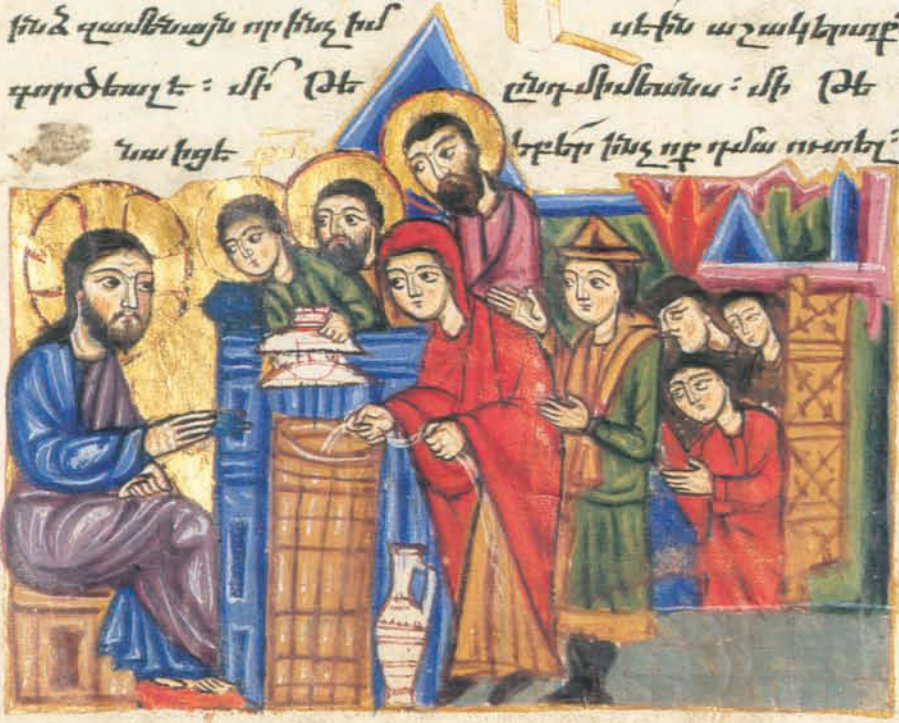 ինձ զամենայն որ ինչ իմ
գործեալ է։ մի՞ թէ
նա իցէ
սէին աշակերտք
ընդ միմեանս։ մի՞ թէ
եբեր ինչ ոք դմա ուտել։